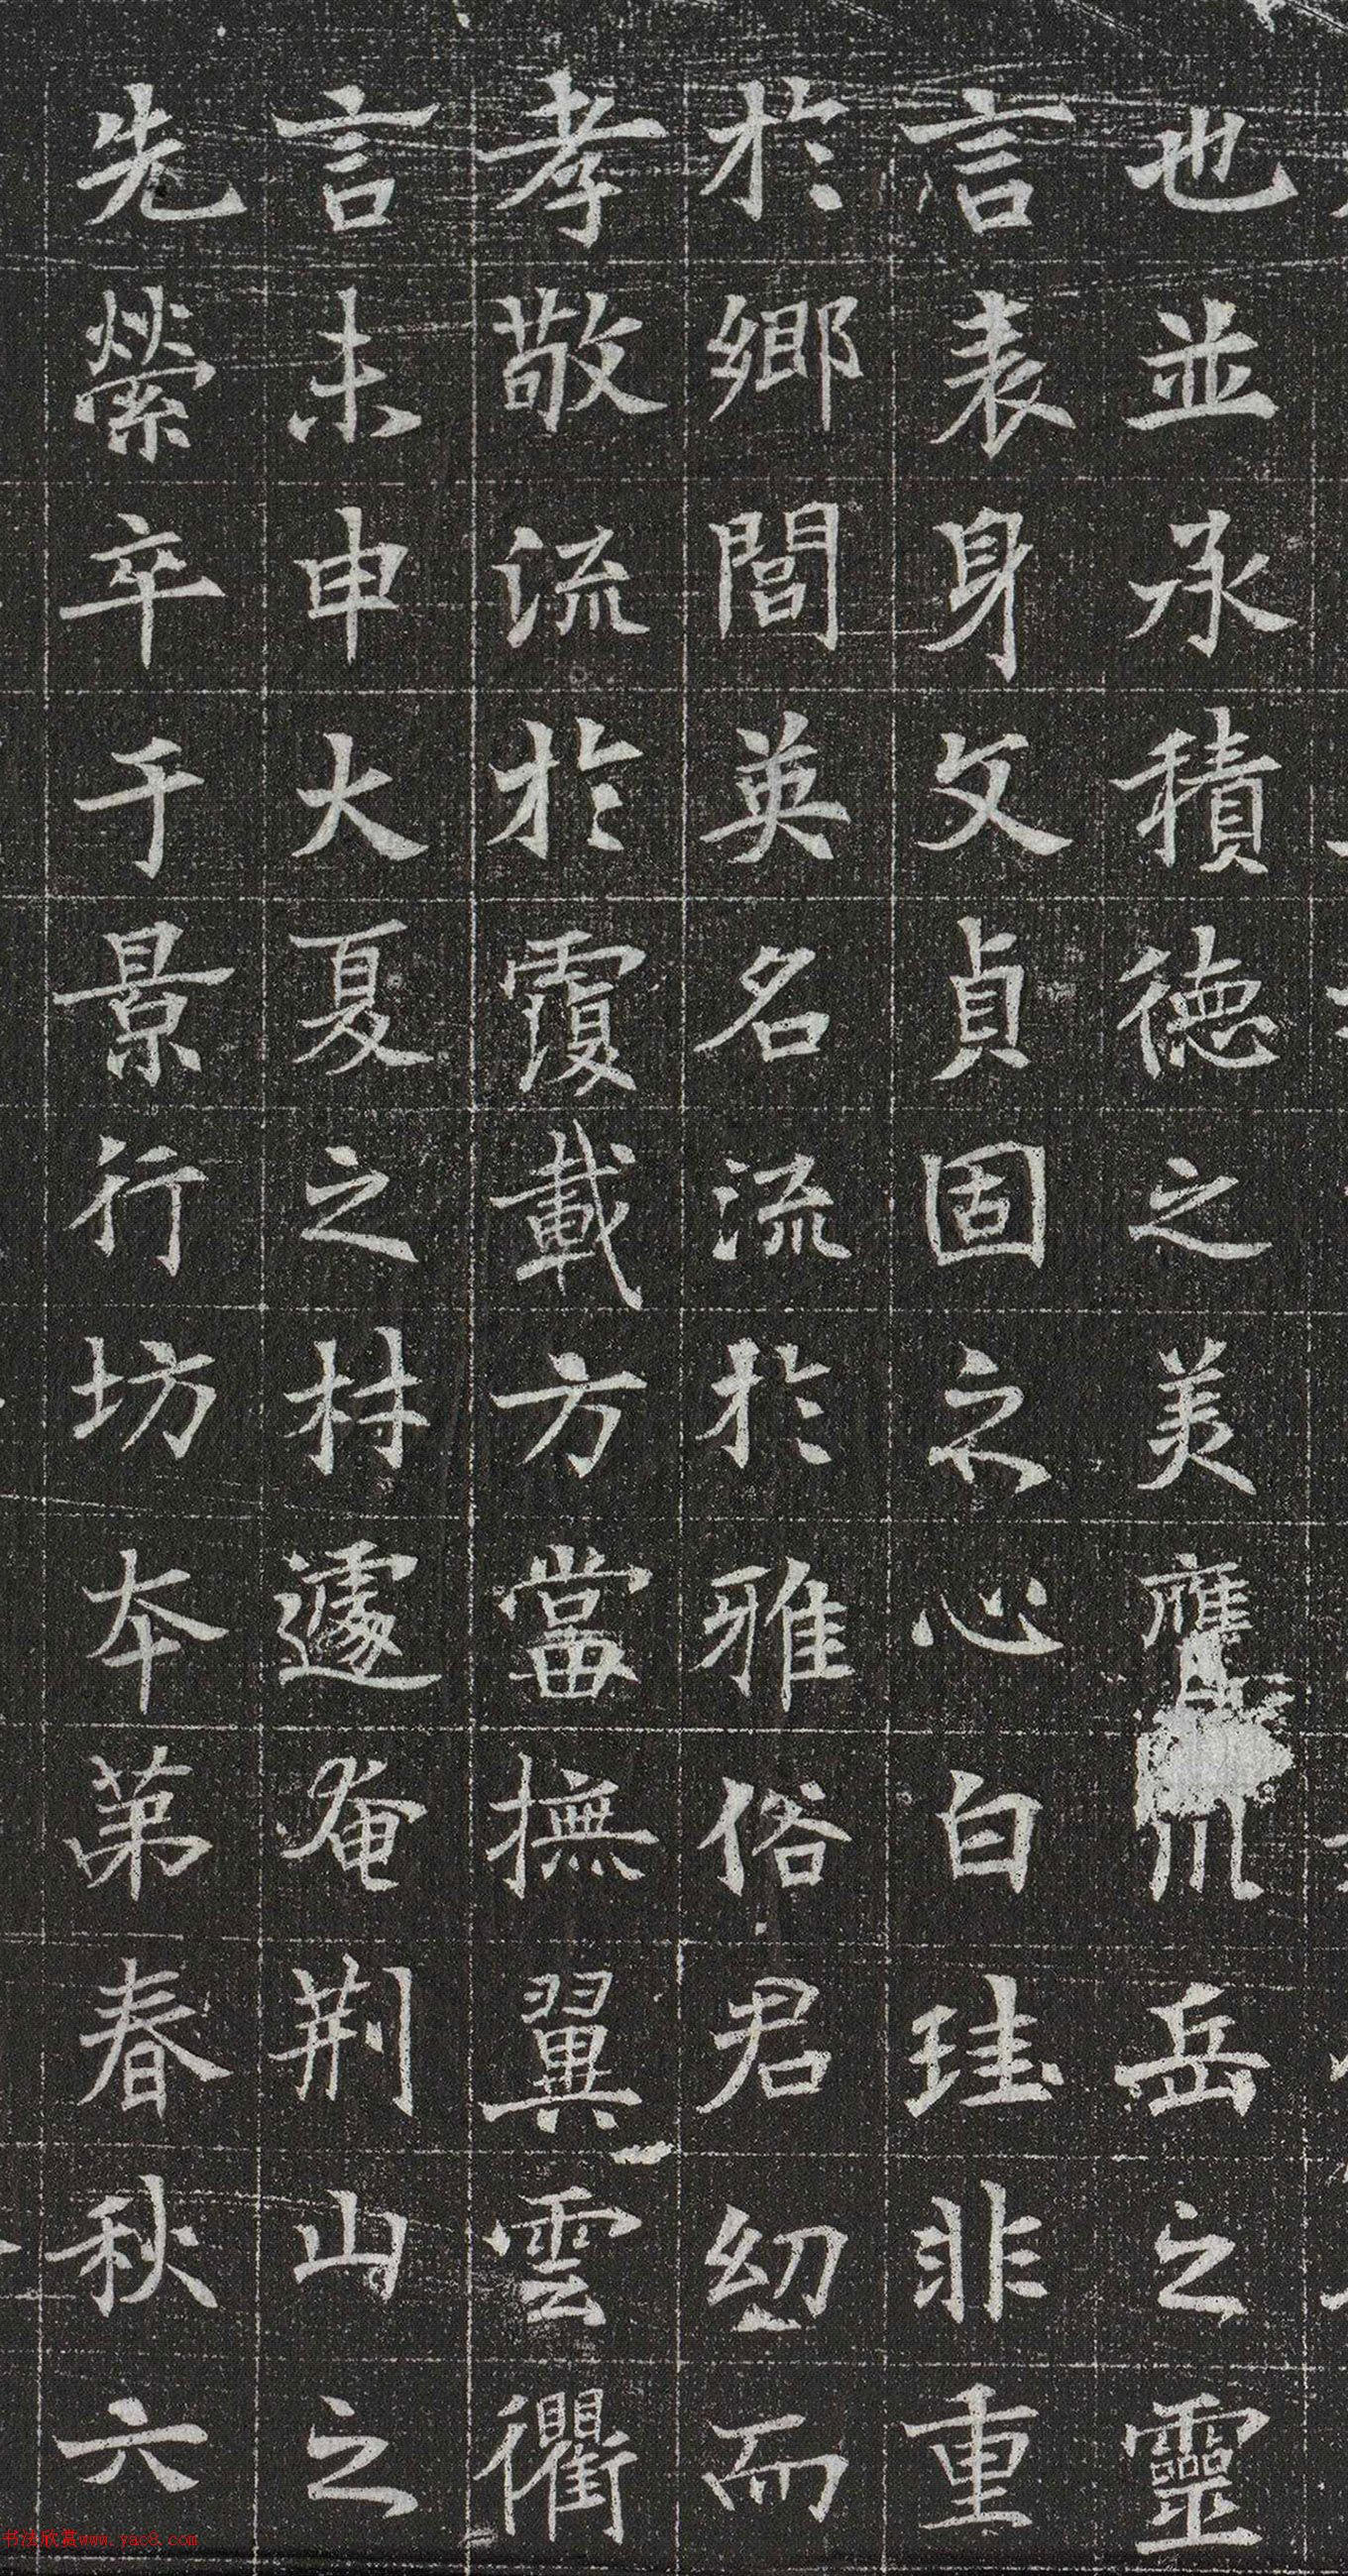 也並承積德之美應岳之靈
言表身文貞固之心白珪非重
於鄉閭英名流於雅俗君幼而
孝敬流於覆載方當撫翼雲衢
言未申大夏之材遽奄荆山之
先塋卒于景行坊本第春秋六
书法欣赏www.yac8.com